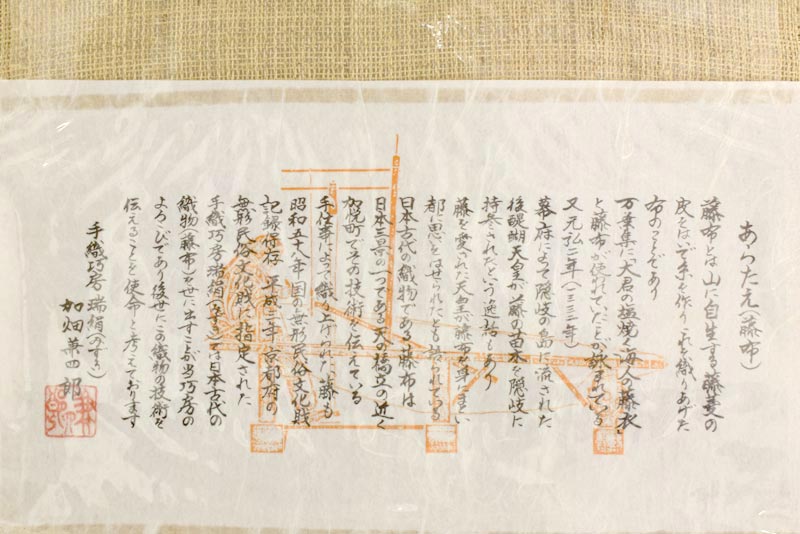 あらたえ(藤布)
藤布とは山に自生する藤蔓の
皮をはいで糸を作りこれを織りあげた
布のことであり
万葉集に大君の塩焼く海人の藤衣
と藤布が使れていたことが歌まれている
又元弘二年(一三三二年)
幕府によって隠岐の島に流された
後醍醐天皇が藤の苗木を隠岐に
持参されたという逸話もあり
藤を愛された天皇が藤布を身にまとい
都に思いをはせられたとも語られている
日本古代の織物である藤布は
日本三景の一つである天の橋立の近く
加悦町でその技術を伝えている
手仕事によって織り上げられた藤布も
昭和五十八年国の無形民俗文化財
記録保存 平成三年京都府の
無形民俗文化財に指定された
手織巧房瑞絹(みずきぬ)では日本古代の
織物(藤布)を世に出すことが当巧房の
よろこびであり後世にこの織物の技術を
伝えることを使命と考えております
手織巧房 瑞絹
加畑兼四郎